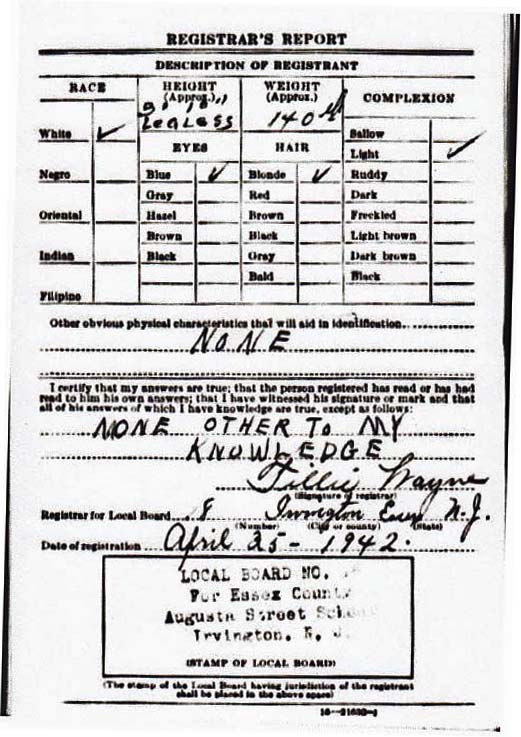 REGISTRAR'S REPORT
DESCRIPTION OF REGISTRANT
RACE
HEIGHT (Approx.)
WEIGHT (Approx.)
COMPLEXION
LEGLESS
140
White ✓
Sallow
EYES
HAIR
Light ✓
Negro
Blue ✓
Blonde ✓
Ruddy
Gray
Red
Dark
Oriental
Hazel
Brown
Freckled
Brown
Black
Light brown
Indian
Black
Gray
Dark brown
Bald
Black
Filipino
Other obvious physical characteristics that will aid in identification
NONE
I certify that my answers are true; that the person registered has read or has had
read to him his own answers; that I have witnessed his signature or mark and that
all of his answers of which I have knowledge are true, except as follows:
NONE OTHER TO MY
KNOWLEDGE
Tillie Wayne
(Signature of registrar)
Registrar for Local Board 8 Irvington Essex N.J.
(Number) (City or county) (State)
Date of registration April 25 - 1942.
LOCAL BOARD NO.
For Essex County
Augusta Street School
Irvington, N. J.
(STAMP OF LOCAL BOARD)
(The stamp of the Local Board having jurisdiction of the registrant
shall be placed in the above space)
16-21630-1